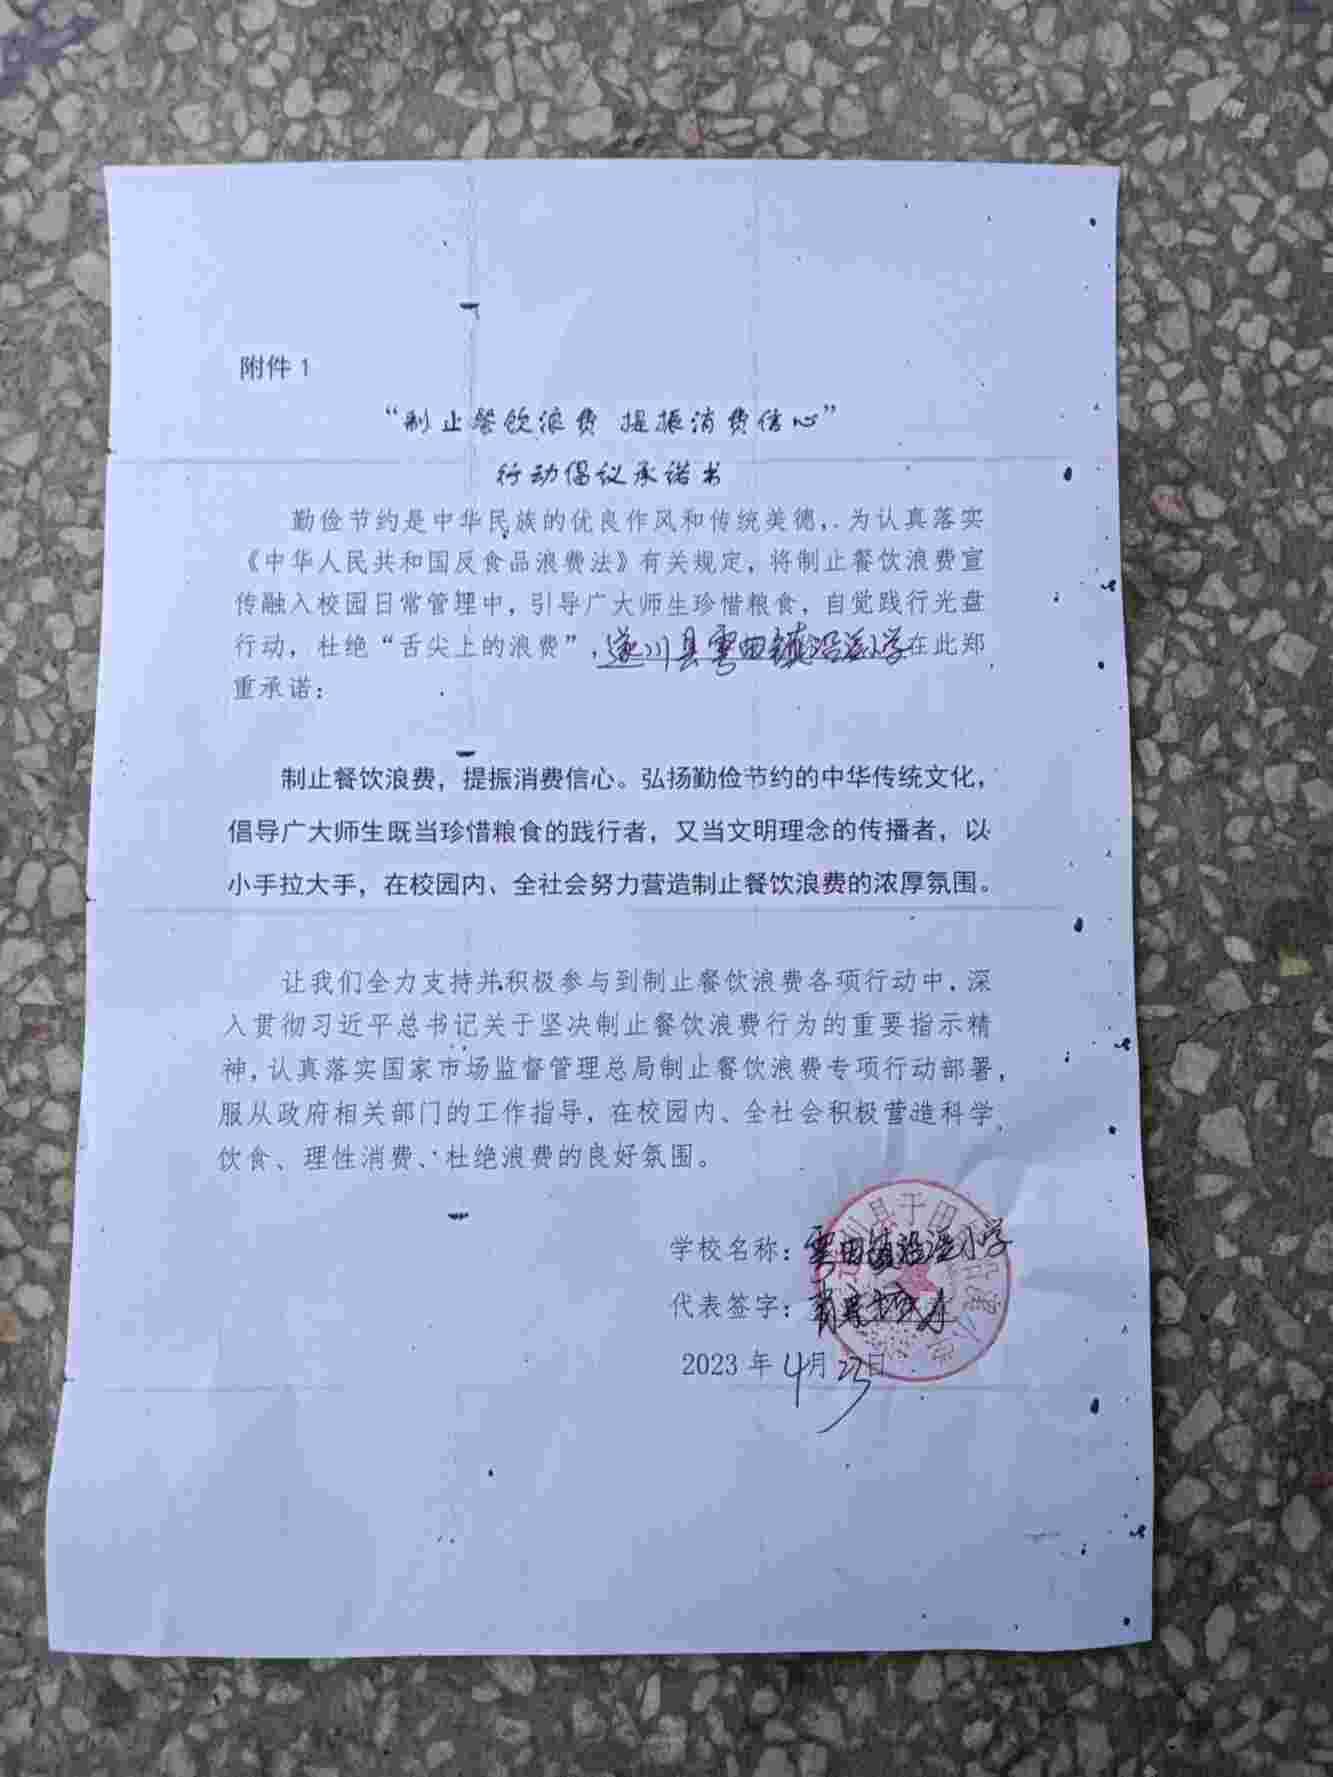 附件 1
“制止餐饮浪费 提振消费信心”
行动倡议承诺书
勤俭节约是中华民族的优良作风和传统美德,为认真落实
《中华人民共和国反食品浪费法》有关规定,将制止餐饮浪费宣
传融入校园日常管理中,引导广大师生珍惜粮食,自觉践行光盘
行动,杜绝“舌尖上的浪费”,遂川县雩田镇沿溪小学在此郑
重承诺:
制止餐饮浪费,提振消费信心。弘扬勤俭节约的中华传统文化,
倡导广大师生既当珍惜粮食的践行者,又当文明理念的传播者,以
小手拉大手,在校园内、全社会努力营造制止餐饮浪费的浓厚氛围。
让我们全力支持并积极参与到制止餐饮浪费各项行动中,深
入贯彻习近平总书记关于坚决制止餐饮浪费行为的重要指示精
神,认真落实国家市场监督管理总局制止餐饮浪费专项行动部署,
服从政府相关部门的工作指导,在校园内、全社会积极营造科学
饮食、理性消费、杜绝浪费的良好氛围。
学校名称:雩田镇沿溪小学
代表签字:
2023 年 4月 23日